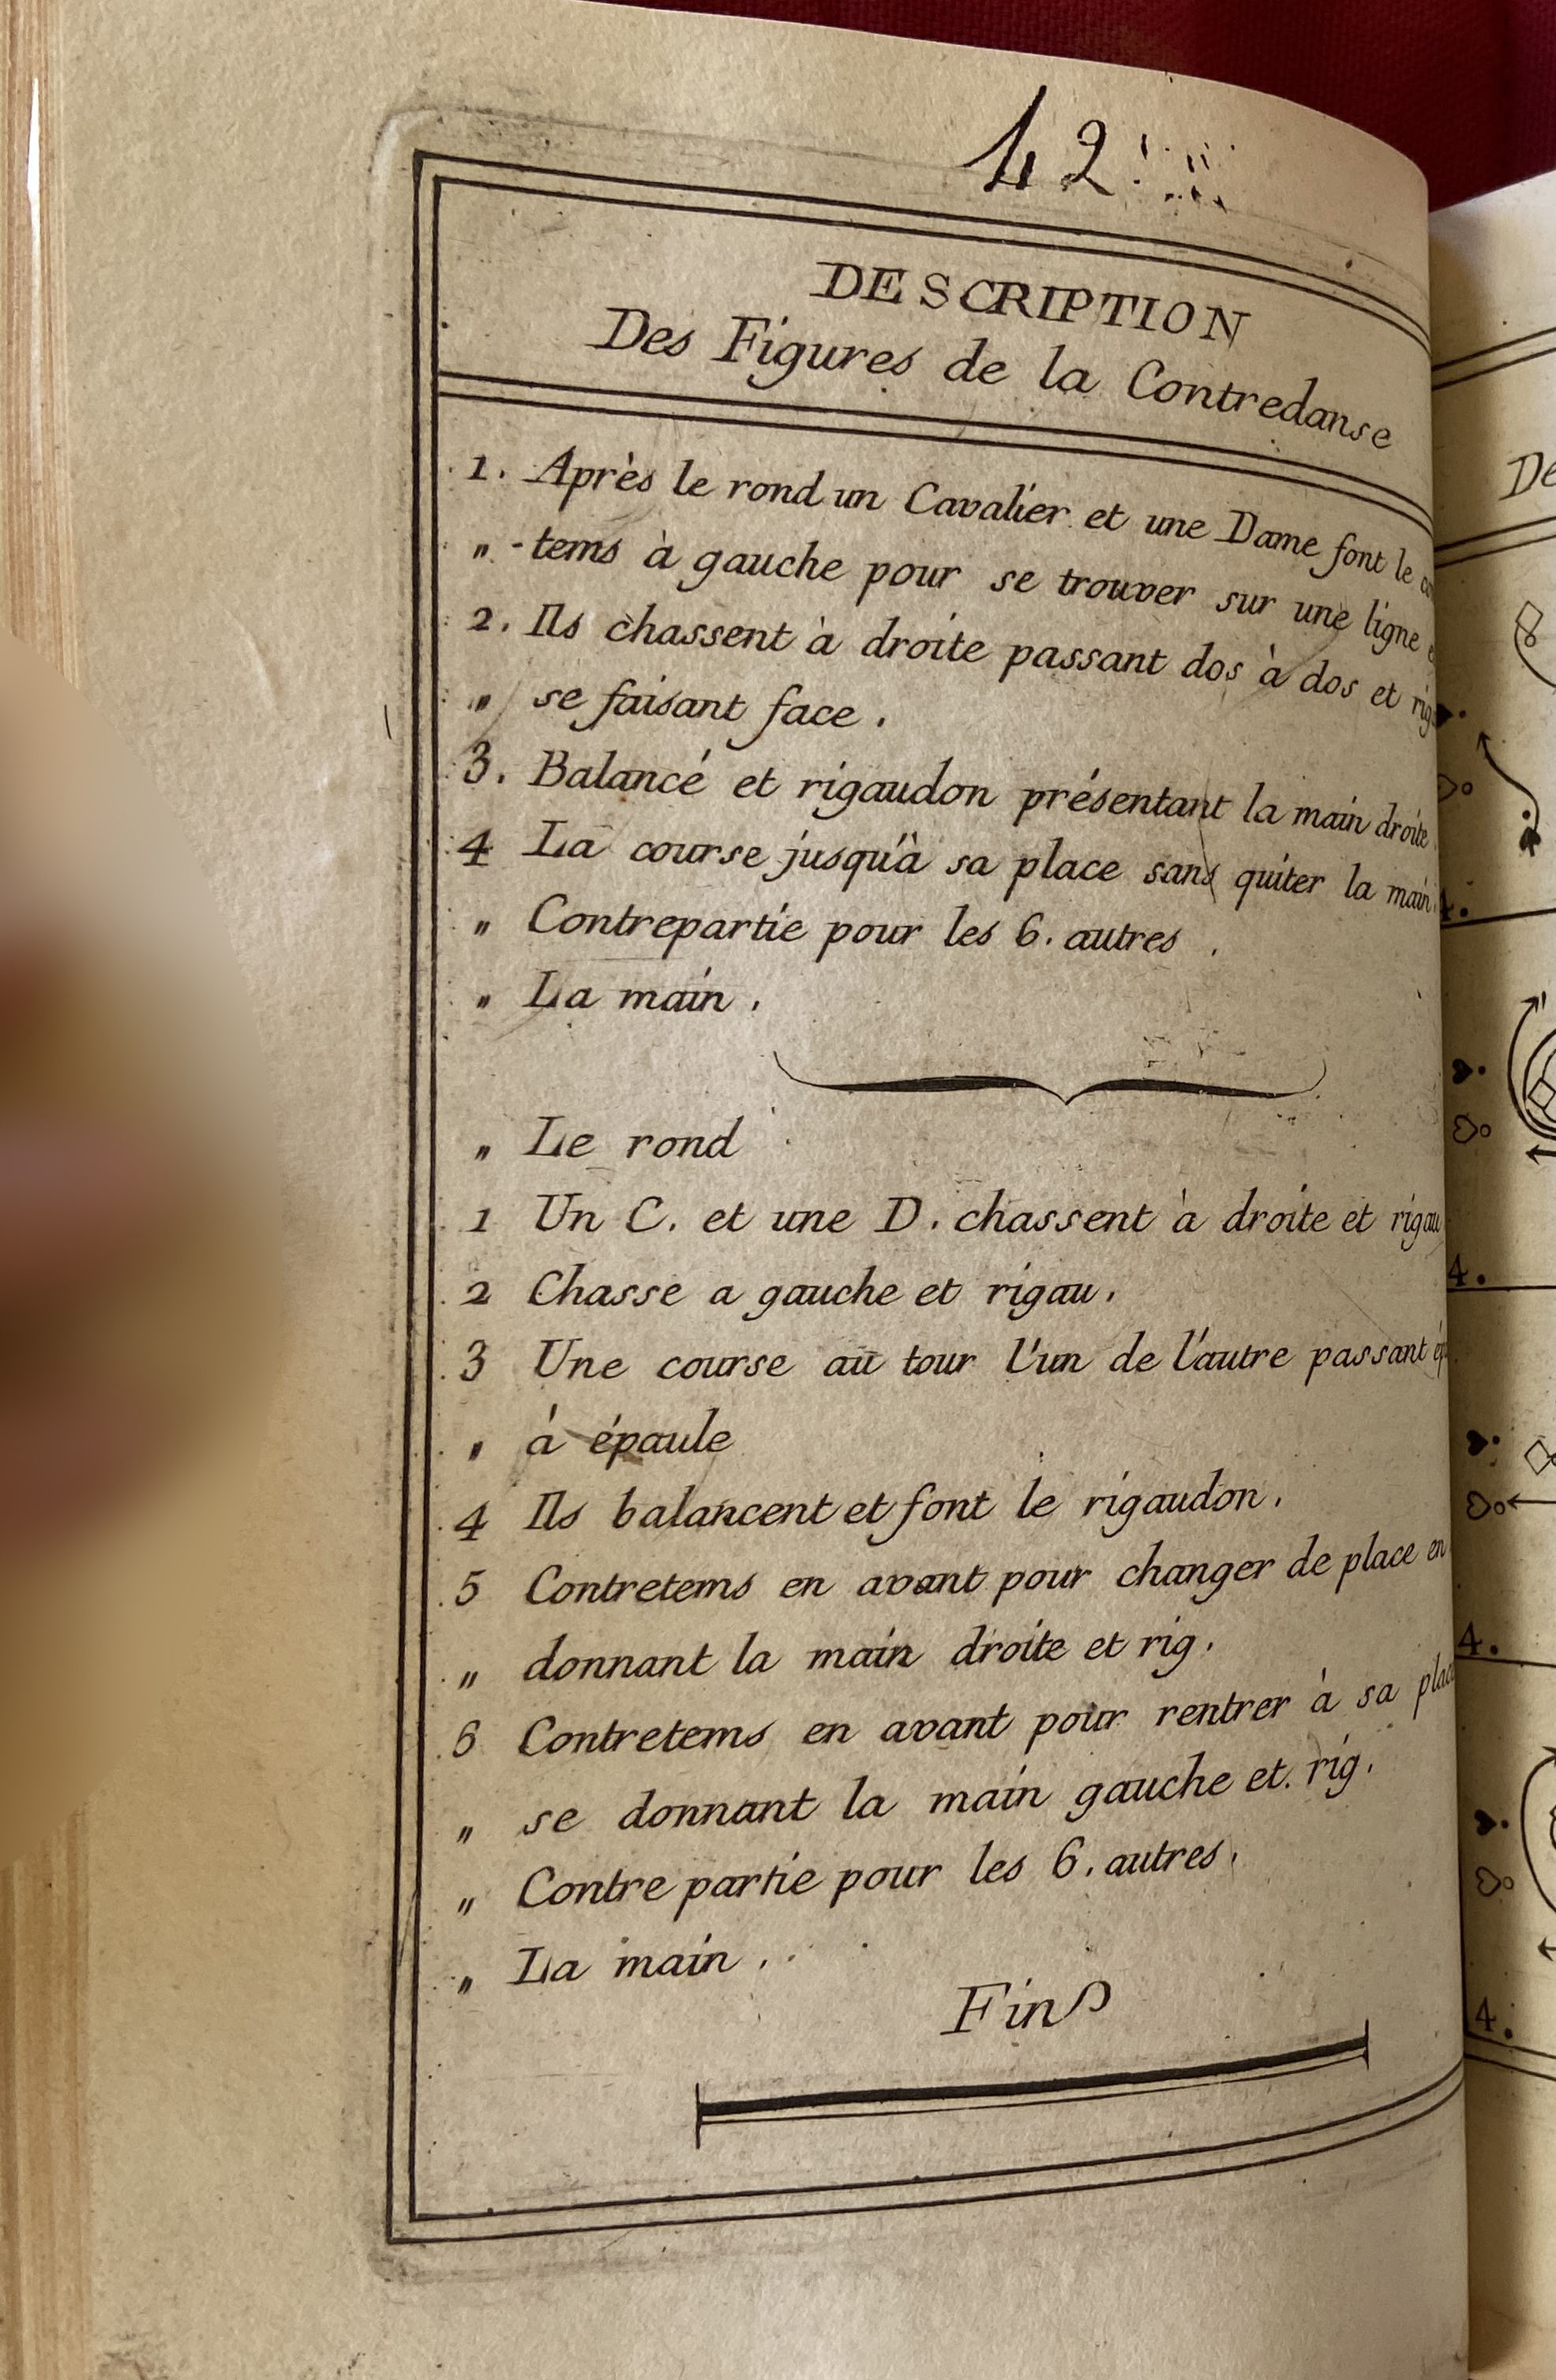 42
DESCRIPTION
Des Figures de la Contredanse
1. Après le rond un Cavalier et une Dame font le
„ -tems à gauche pour se trouver sur une ligne
2. Ils chassent à droite passant dos à dos et
„ se faisant face.
3. Balancé et rigaudon présentant la main droite
4 La course jusqu'à sa place sans quiter la main
„ Contrepartie pour les 6. autres.
„ La main.
„ Le rond
1 Un C. et une D. chassent à droite et rigau
2 Chasse a gauche et rigau.
3 Une course au tour l'un de l'autre passant
„ à épaule
4 Ils balancent et font le rigaudon.
5 Contretems en avant pour changer de place en
„ donnant la main droite et rig.
6 Contretems en avant pour rentrer à sa place
„ se donnant la main gauche et. rig.
„ Contre partie pour les 6. autres.
„ La main.
Fin
De
4.
4.
4.
4.